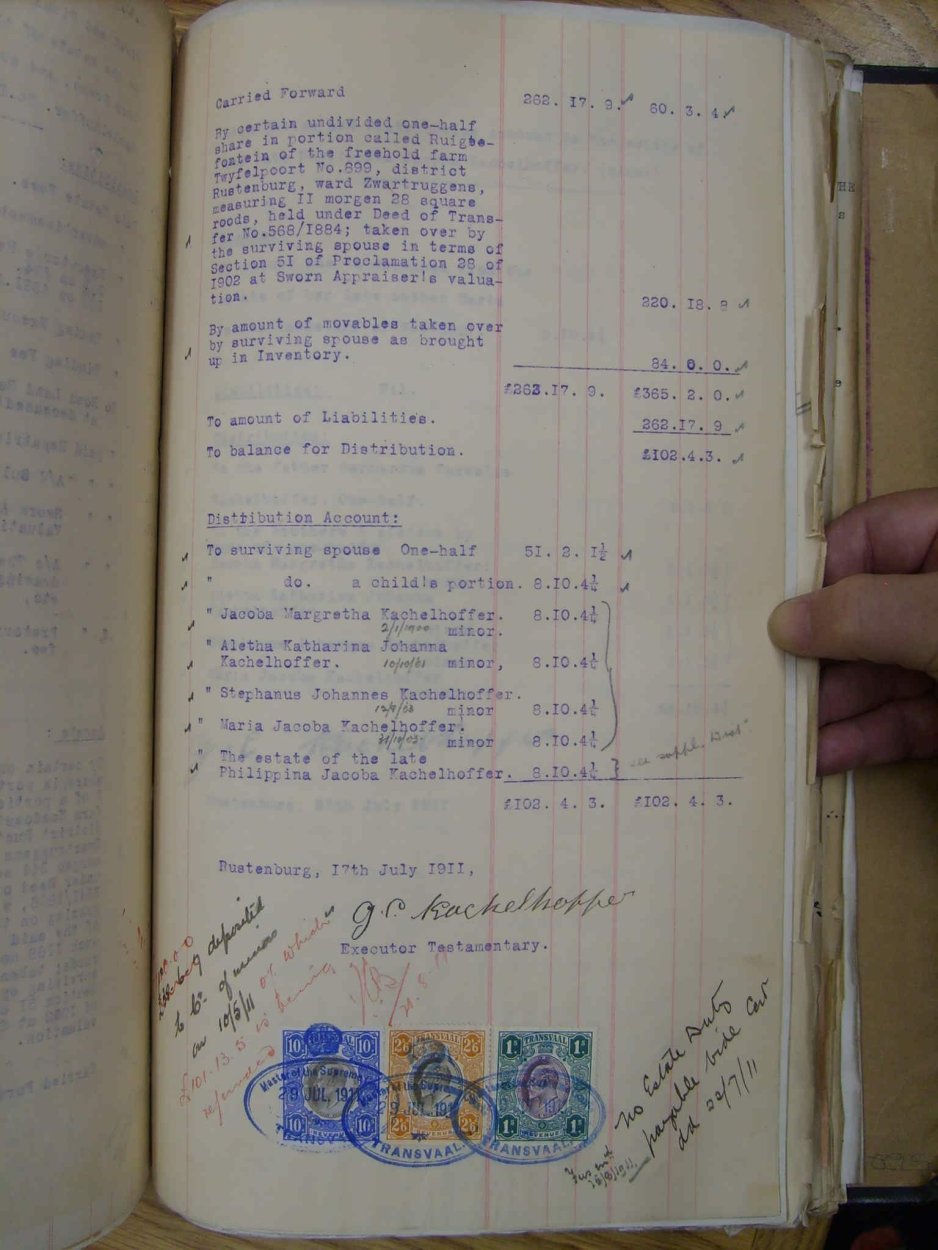 Carried Forward 262. I7. 9. 60. 3. 4.
By certain undivided one-half
share in portion called Ruigte-
fontein of the freehold farm
Twyfelpoort No.899, district
Rustenburg, ward Zwartruggens,
measuring II morgen 28 square
roods, held under Deed of Trans-
fer No.568/I884; taken over by
the surviving spouse in terms of
Section 5I of Proclamation 28 of
I902 at Sworn Appraiser's valua-
tion. 220. I8. 8
By amount of movables taken over
by surviving spouse as brought
up in Inventory. 84. 0. 0.
£263.I7. 9. £365. 2. 0.
To amount of Liabilities. 262.I7. 9
To balance for Distribution. £I02.4.3.
Distribution Account:
To surviving spouse One-half 5I. 2. I½
" do. a child's portion. 8.I0.4¼
" Jacoba Margretha Kachelhoffer. 8.I0.4¼
2/1/1900 minor.
" Aletha Katharina Johanna
Kachelhoffer. 10/10/01 minor, 8.I0.4¼
" Stephanus Johannes Kachelhoffer.
minor 8.I0.4¼
" Maria Jacoba Kachelhoffer.
minor 8.I0.4¼
" The estate of the late
Philippina Jacoba Kachelhoffer. 8.I0.4¼ see suppl. Dist.
£I02. 4. 3. £I02. 4. 3.
Rustenburg, I7th July I9II,
G.P. Kachelhoffer
Executor Testamentary.
deposited
of minors
on 10/5/11 of which
£101.13.5 is being
refunded
TRANSVAAL
10/- 10/-
10/- REVENUE 10/-
TRANSVAAL
2/6 2/6
2/6 REVENUE 2/6
TRANSVAAL
1/- 1/-
1/- REVENUE 1/-
Master of the Supreme
29 JUL, 1911
TRANSVAAL
Master of the Supreme
29 JUL 191
TRANSVAAL
TRANSVAAL
No Estate Duty
payable vide Cov
dd 22/7/11